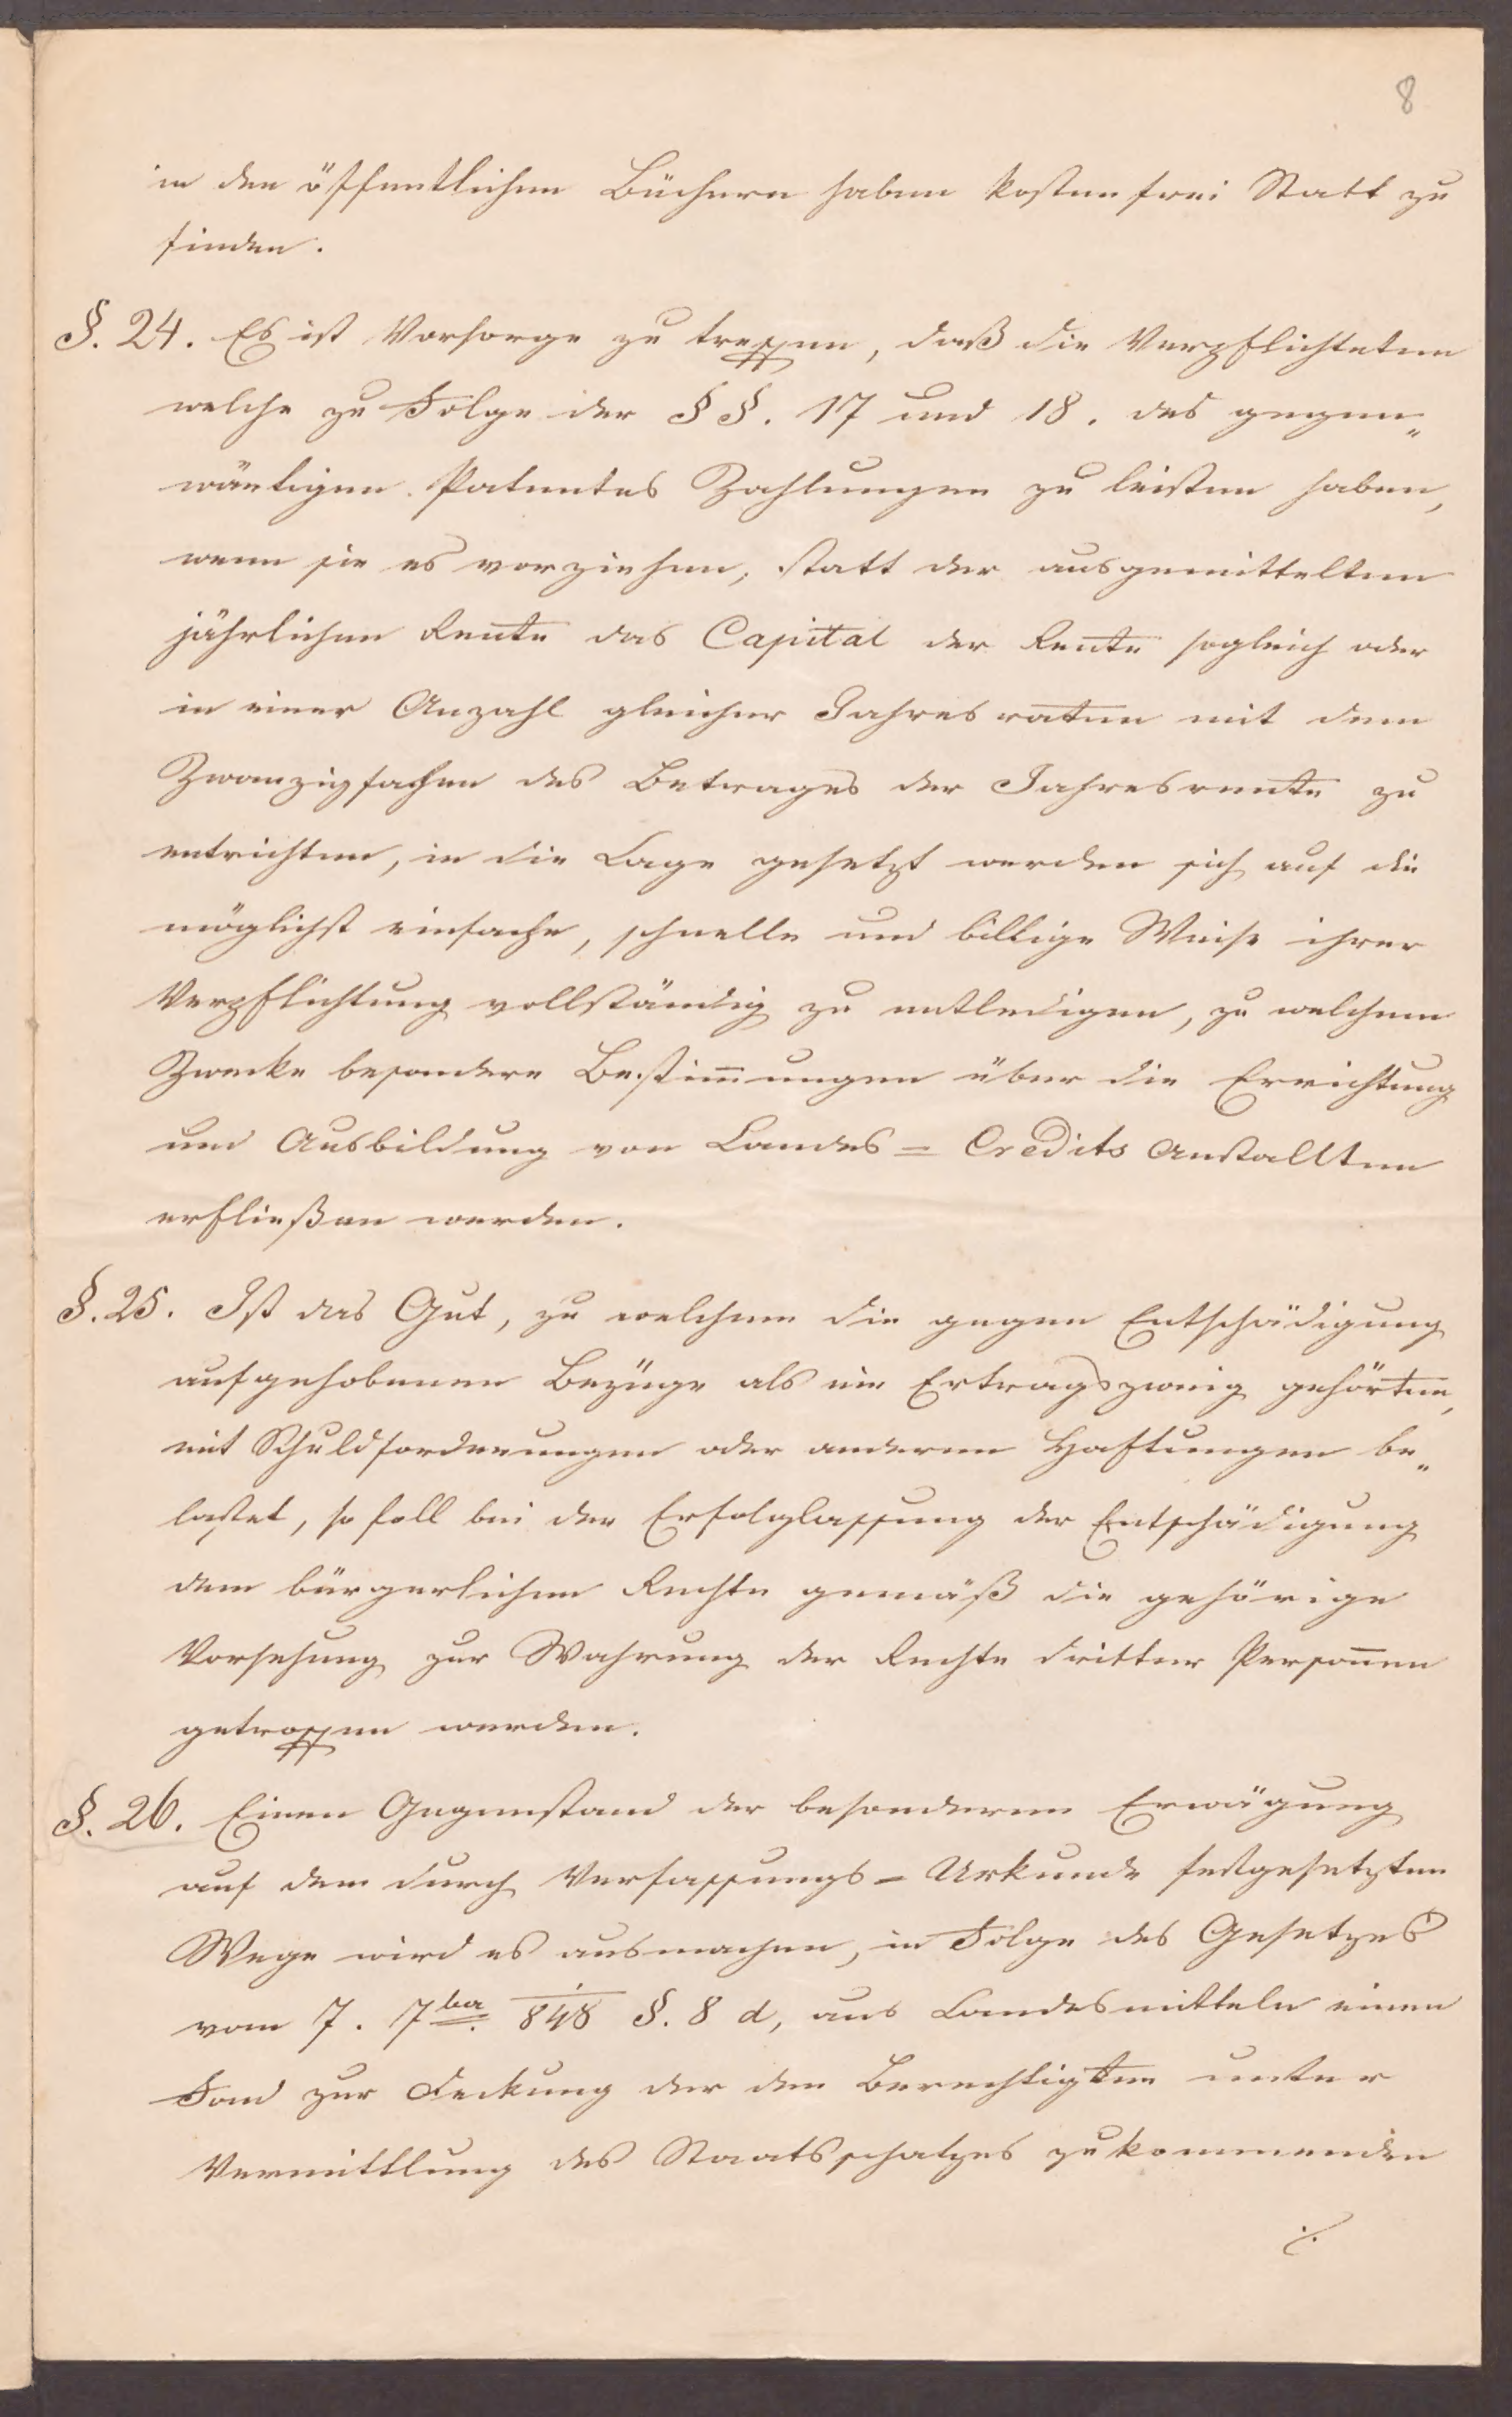 8
in den öffentlichen Büchern haben kostenfrei Statt zu
finden.
§. 24. Es ist Vorsorge zu treffen, daß die Verpflichteten
welche zu Folge der §§. 17 und 18. des gegen„
wärtigen Patentes Zahlungen zu leisten haben,
wenn sie es vorziehen, statt der ausgemittelten
jährlichen Rente das Capital der Rente sogleich oder
in einer Anzahl gleicher Jahresraten mit dem
Zwanzigfachen des Betrages der Jahresrente zu
entrichten, in die Lage gesetzt werden sich auf die
möglichst einfache, schnelle und billige Weise ihrer
Verpflichtung vollständig zu entledigen, zu welchem
Zwecke besondere Bestim̅ungen über die Errichtung
und Ausbildung von Landes=Credits Anstallten
erfließen werden.
§. 25. Ist das Gut, zu welchem die gegen Entschädigung
aufgehobenen Bezüge als ein Ertragszweig gehörten,
mit Schuldforderungen oder anderen Haftungen be„
lastet, so soll bei der Erfolglassung der Entschädigung
dem bürgerlichen Rechte gemäß die gehörige
Vorsehung zur Wahrung der Rechte dritter Person̅en
getroffen werden.
§. 26. Einen Gegenstand der besonderen Erwägung
auf dem durch Verfassungs=Urkunde festgesetzten
Wege wird es ausmachen, in Folge des Gesetzes
vom 7. 7ber 848 §. 8 d, aus Landesmitteln einen
Fond zur Deckung der den Berechtigten unter
Vermittlung des Staatsschatzes zukommenden
./.